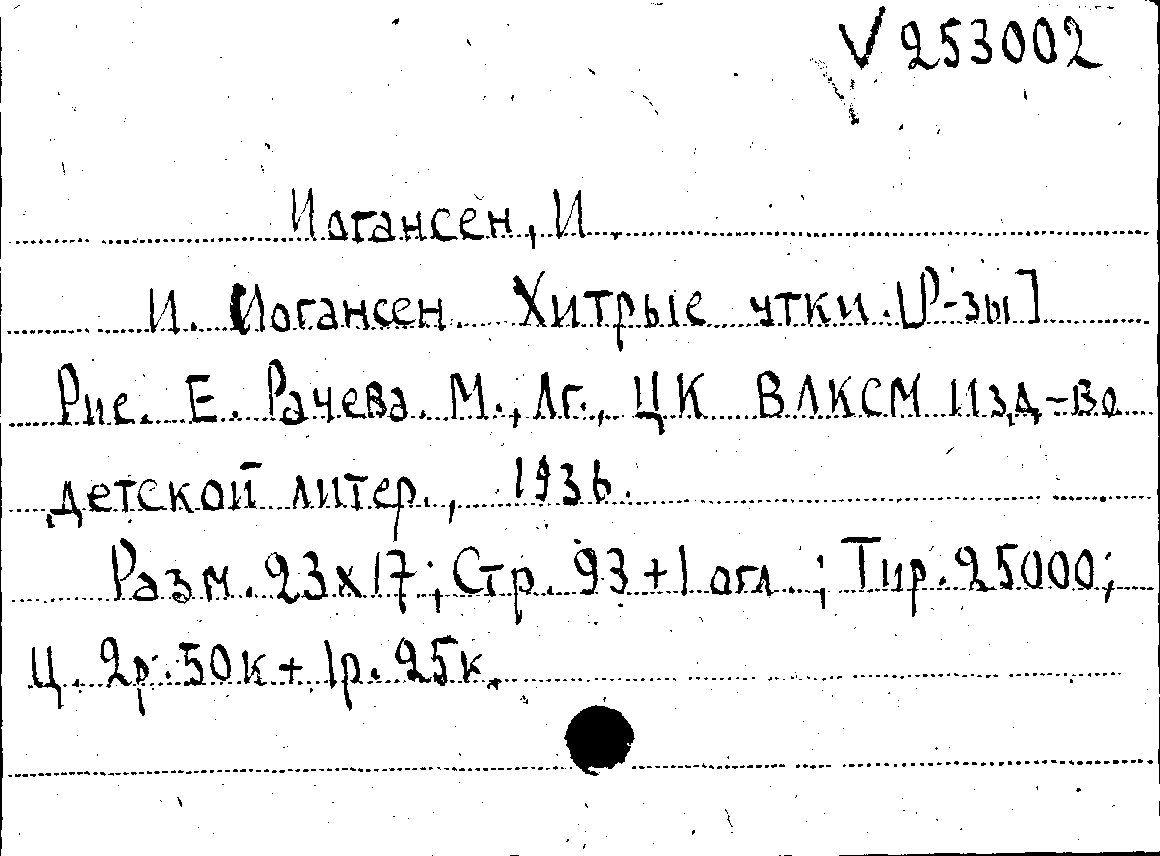 V 253002
Иогансен, И.
И. Иогансен. Хитрые утки. [Р-зы]
Рис. Е. Рачева. М., Лг., ЦК ВЛКСМ Изд-во
детской литер., 1936.
Разм. 23х17; Стр. 93+1 огл.; Тир. 25000;
Ц. 2р. 50к + 1р. 25к.